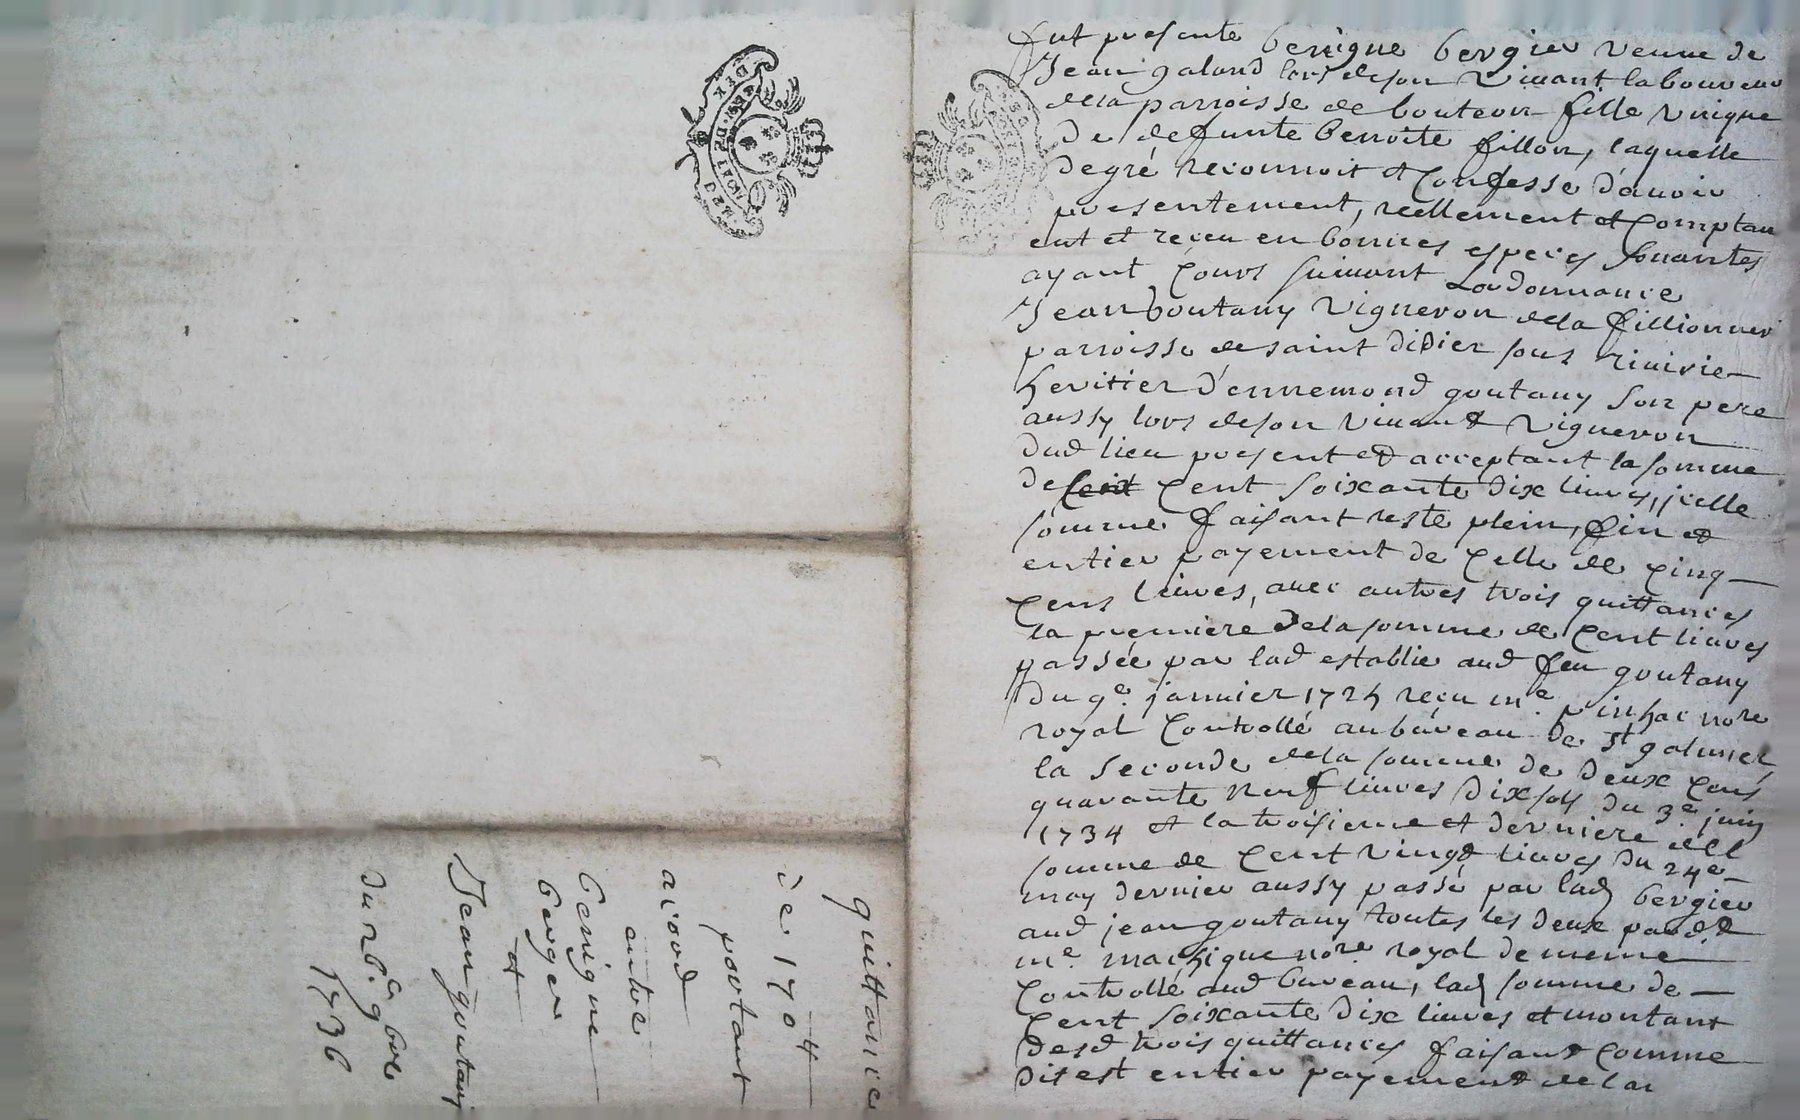 fut presente benigne bergier veuue de
Jean galand lors de son viuant laboureur
de la parroisse de bouteon fille vnique
De defunte benoite fillon, laquelle
de gré reconnoit et Confesse d'auoir
presentement, reellement et Comptan
ent et receu en bonnes especes sonantes
ayant Cours suiuant Lordonnance
Jean goutany Vigneron de la fillionneri
parroisse de saint didier sous riuirie
heritier d'ennemond goutany son pere
aussy lors de son viuant Vigneron
dud lieu present et acceptant la somme
de Cent Cent soixante dix liures, jcelle
somme faisant reste plein, fin et
entier payement de Celle de Cinq
Cens liures, auec autres trois quittances
la premiere De la somme de Cent liures
passée par lad establie aud feu goutany
du 9e. januier 1724 reçu me. pinhac nore
royal Controllé au bureau de st galmier
la seconde de la somme de deux Cens
quarante neuf liures dix sols du 3e juin
1734 et la troisieme et derniere del
somme de Cent vingt liures du 24e
may dernier aussy passé par lad bergier
aud jean goutany toutes les deux pard.t
me. machique nore royal de meme
Controllé aud bureau, lad somme de
Cent soixante dix liures et montant
desd trois quittances faisant Comme
dit est entier payement de la
quittance
ie 1704
portant
acord
entre
benigne
berger
et
Jean goutany
du 26e 9bre
1736